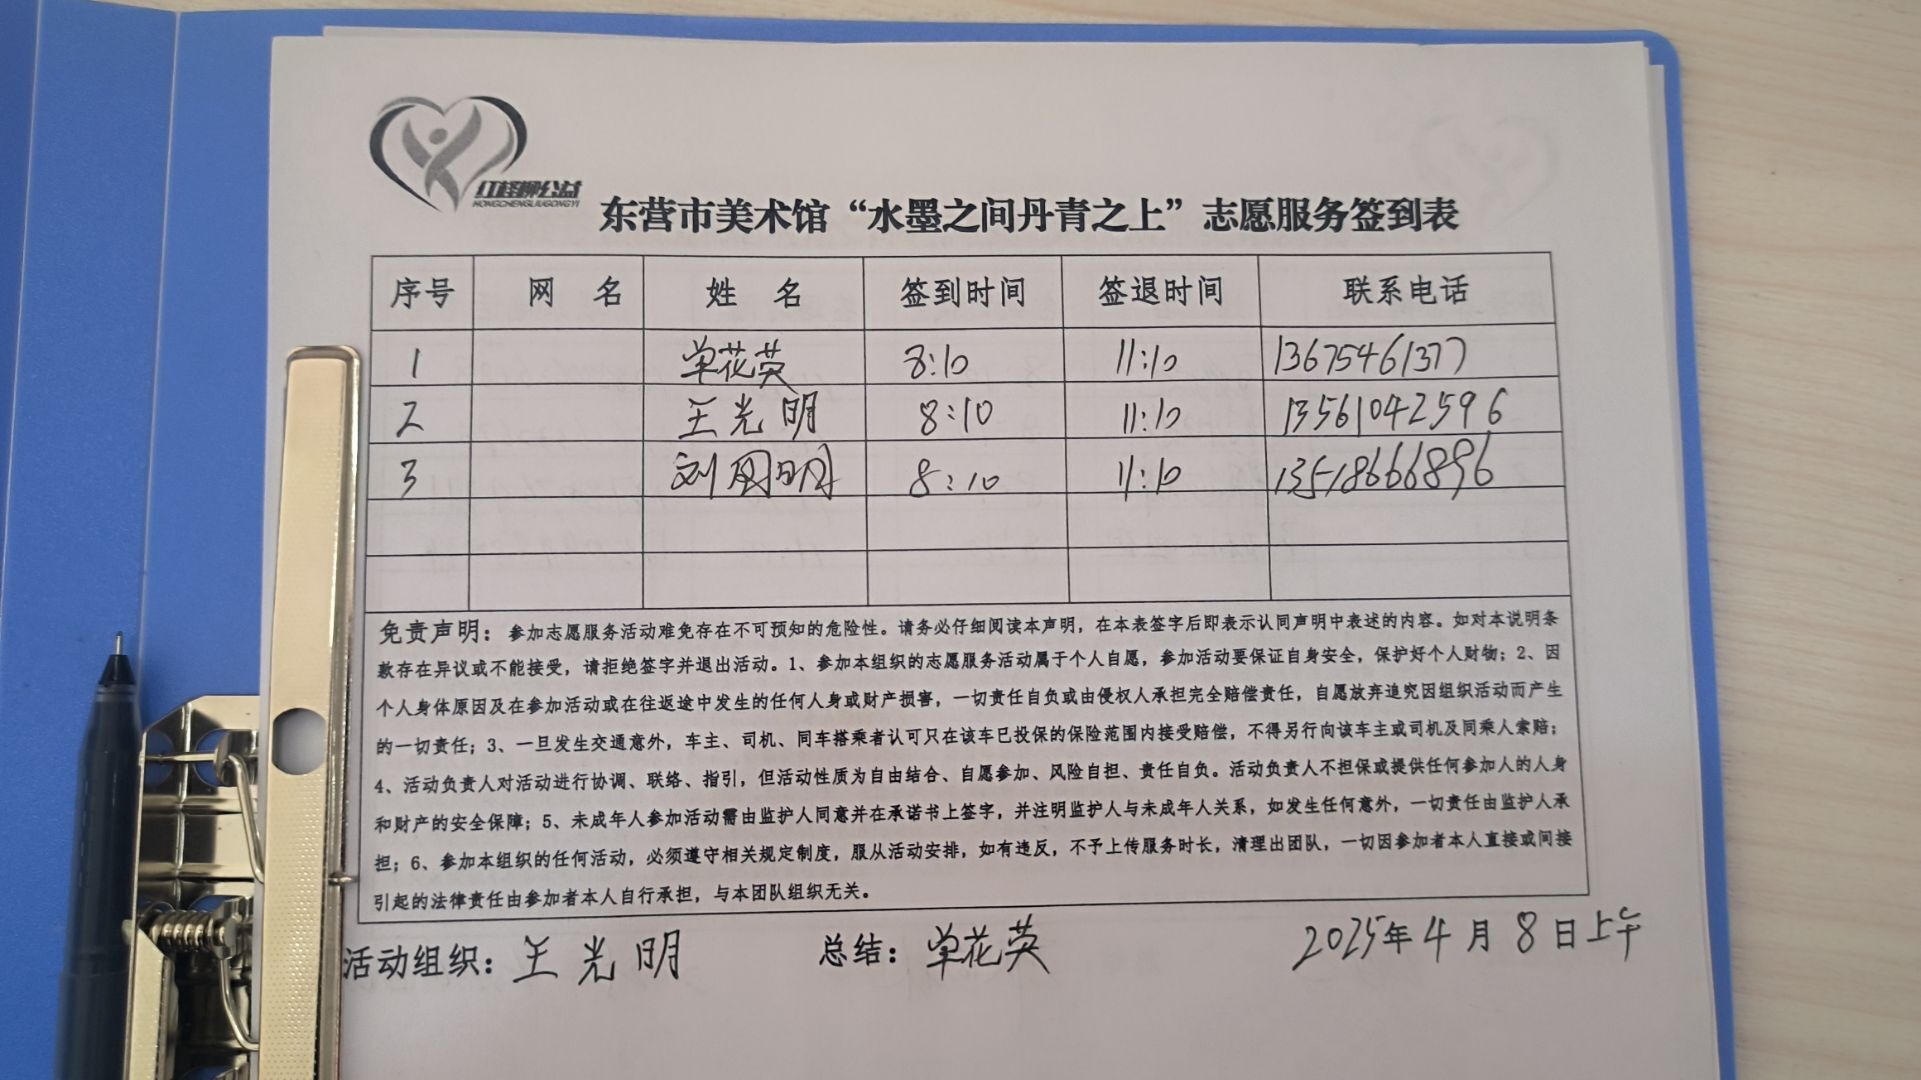 红柽柳公益
HONGCHENGLIUGONGYI
东营市美术馆“水墨之间丹青之上”志愿服务签到表
序号 网 名 姓 名 签到时间 签退时间 联系电话
1 单花英 8:10 11:10 13675461377
2 王光明 8:10 11:10 13561042596
3 刘周明 8:10 11:10 13518666896
免责声明：参加志愿服务活动难免存在不可预知的危险性。请务必仔细阅读本声明，在本表签字后即表示认同声明中表述的内容。如对本说明条
款存在异议或不能接受，请拒绝签字并退出活动。1、参加本组织的志愿服务活动属于个人自愿，参加活动要保证自身安全，保护好个人财物；2、因
个人身体原因及在参加活动或在往返途中发生的任何人身或财产损害，一切责任自负或由侵权人承担完全赔偿责任，自愿放弃追究因组织活动而产生
的一切责任；3、一旦发生交通意外，车主、司机、同车搭乘者认可只在该车已投保的保险范围内接受赔偿，不得另行向该车主或司机及同乘人索赔；
4、活动负责人对活动进行协调、联络、指引，但活动性质为自由结合、自愿参加、风险自担、责任自负。活动负责人不担保或提供任何参加人的人身
和财产的安全保障；5、未成年人参加活动需由监护人同意并在承诺书上签字，并注明监护人与未成年人关系，如发生任何意外，一切责任由监护人承
担；6、参加本组织的任何活动，必须遵守相关规定制度，服从活动安排，如有违反，不予上传服务时长，清理出团队，一切因参加者本人直接或间接
引起的法律责任由参加者本人自行承担，与本团队组织无关。
活动组织：王光明 总结：单花英 2025年4月8日上午